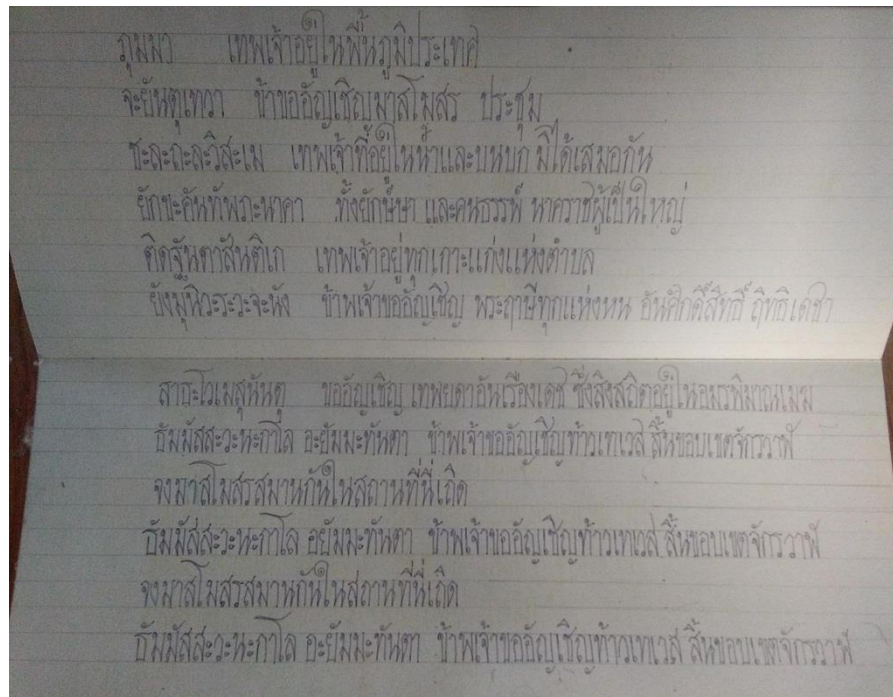 ภุมมา เทพเจ้าอยู่ในพื้นภูมิประเทศ
จะยันตุเทวา ข้าขออัญเชิญมาสโมสร ประชุม
ชะละถะละวิสะเม เทพเจ้าที่อยู่ในน้ำและบนบก มิได้เสมอกัน
ยักขะคันทัพภะนาคา ทั้งยักษ์ษา และคนธรรพ์ นาคราชผู้เป็นใหญ่
ติดฐันตาสันติเก เทพเจ้าอยู่ทุกเกาะแก่งแห่งตำบล
ยังมุนิวะระวะจะนัง ข้าพเจ้าขออัญเชิญ พระฤาษีทุกแห่งหน อันศักดิ์สิทธิ์ ฤทธิเดชา
สาธะโวเมสุนันตุ ขออัญเชิญ เทพยดาอันเรืองเดช ซึ่งสิงสถิตอยู่ในอมรพิมาณเมฆ
ธัมมัสสะวะนะกาโล อะยัมมะทันตา ข้าพเจ้าขออัญเชิญท้าวเทเวส สิ้นขอบเขตจักรวาฬ
จงมาสโมสรสมานกันในสถานที่นี่เถิด
ธัมมัสสะวะนะกาโล อยัมมะทันตา ข้าพเจ้าขออัญเชิญท้าวเทเวส สิ้นขอบเขตจักรวาฬ
จงมาสโมสรสมานกันในสถานที่นี่เถิด
ธัมมัสสะวะนะกาโล อะยัมมะทันตา ข้าพเจ้าขออัญเชิญท้าวเทเวส สิ้นขอบเขตจักรวาฬ